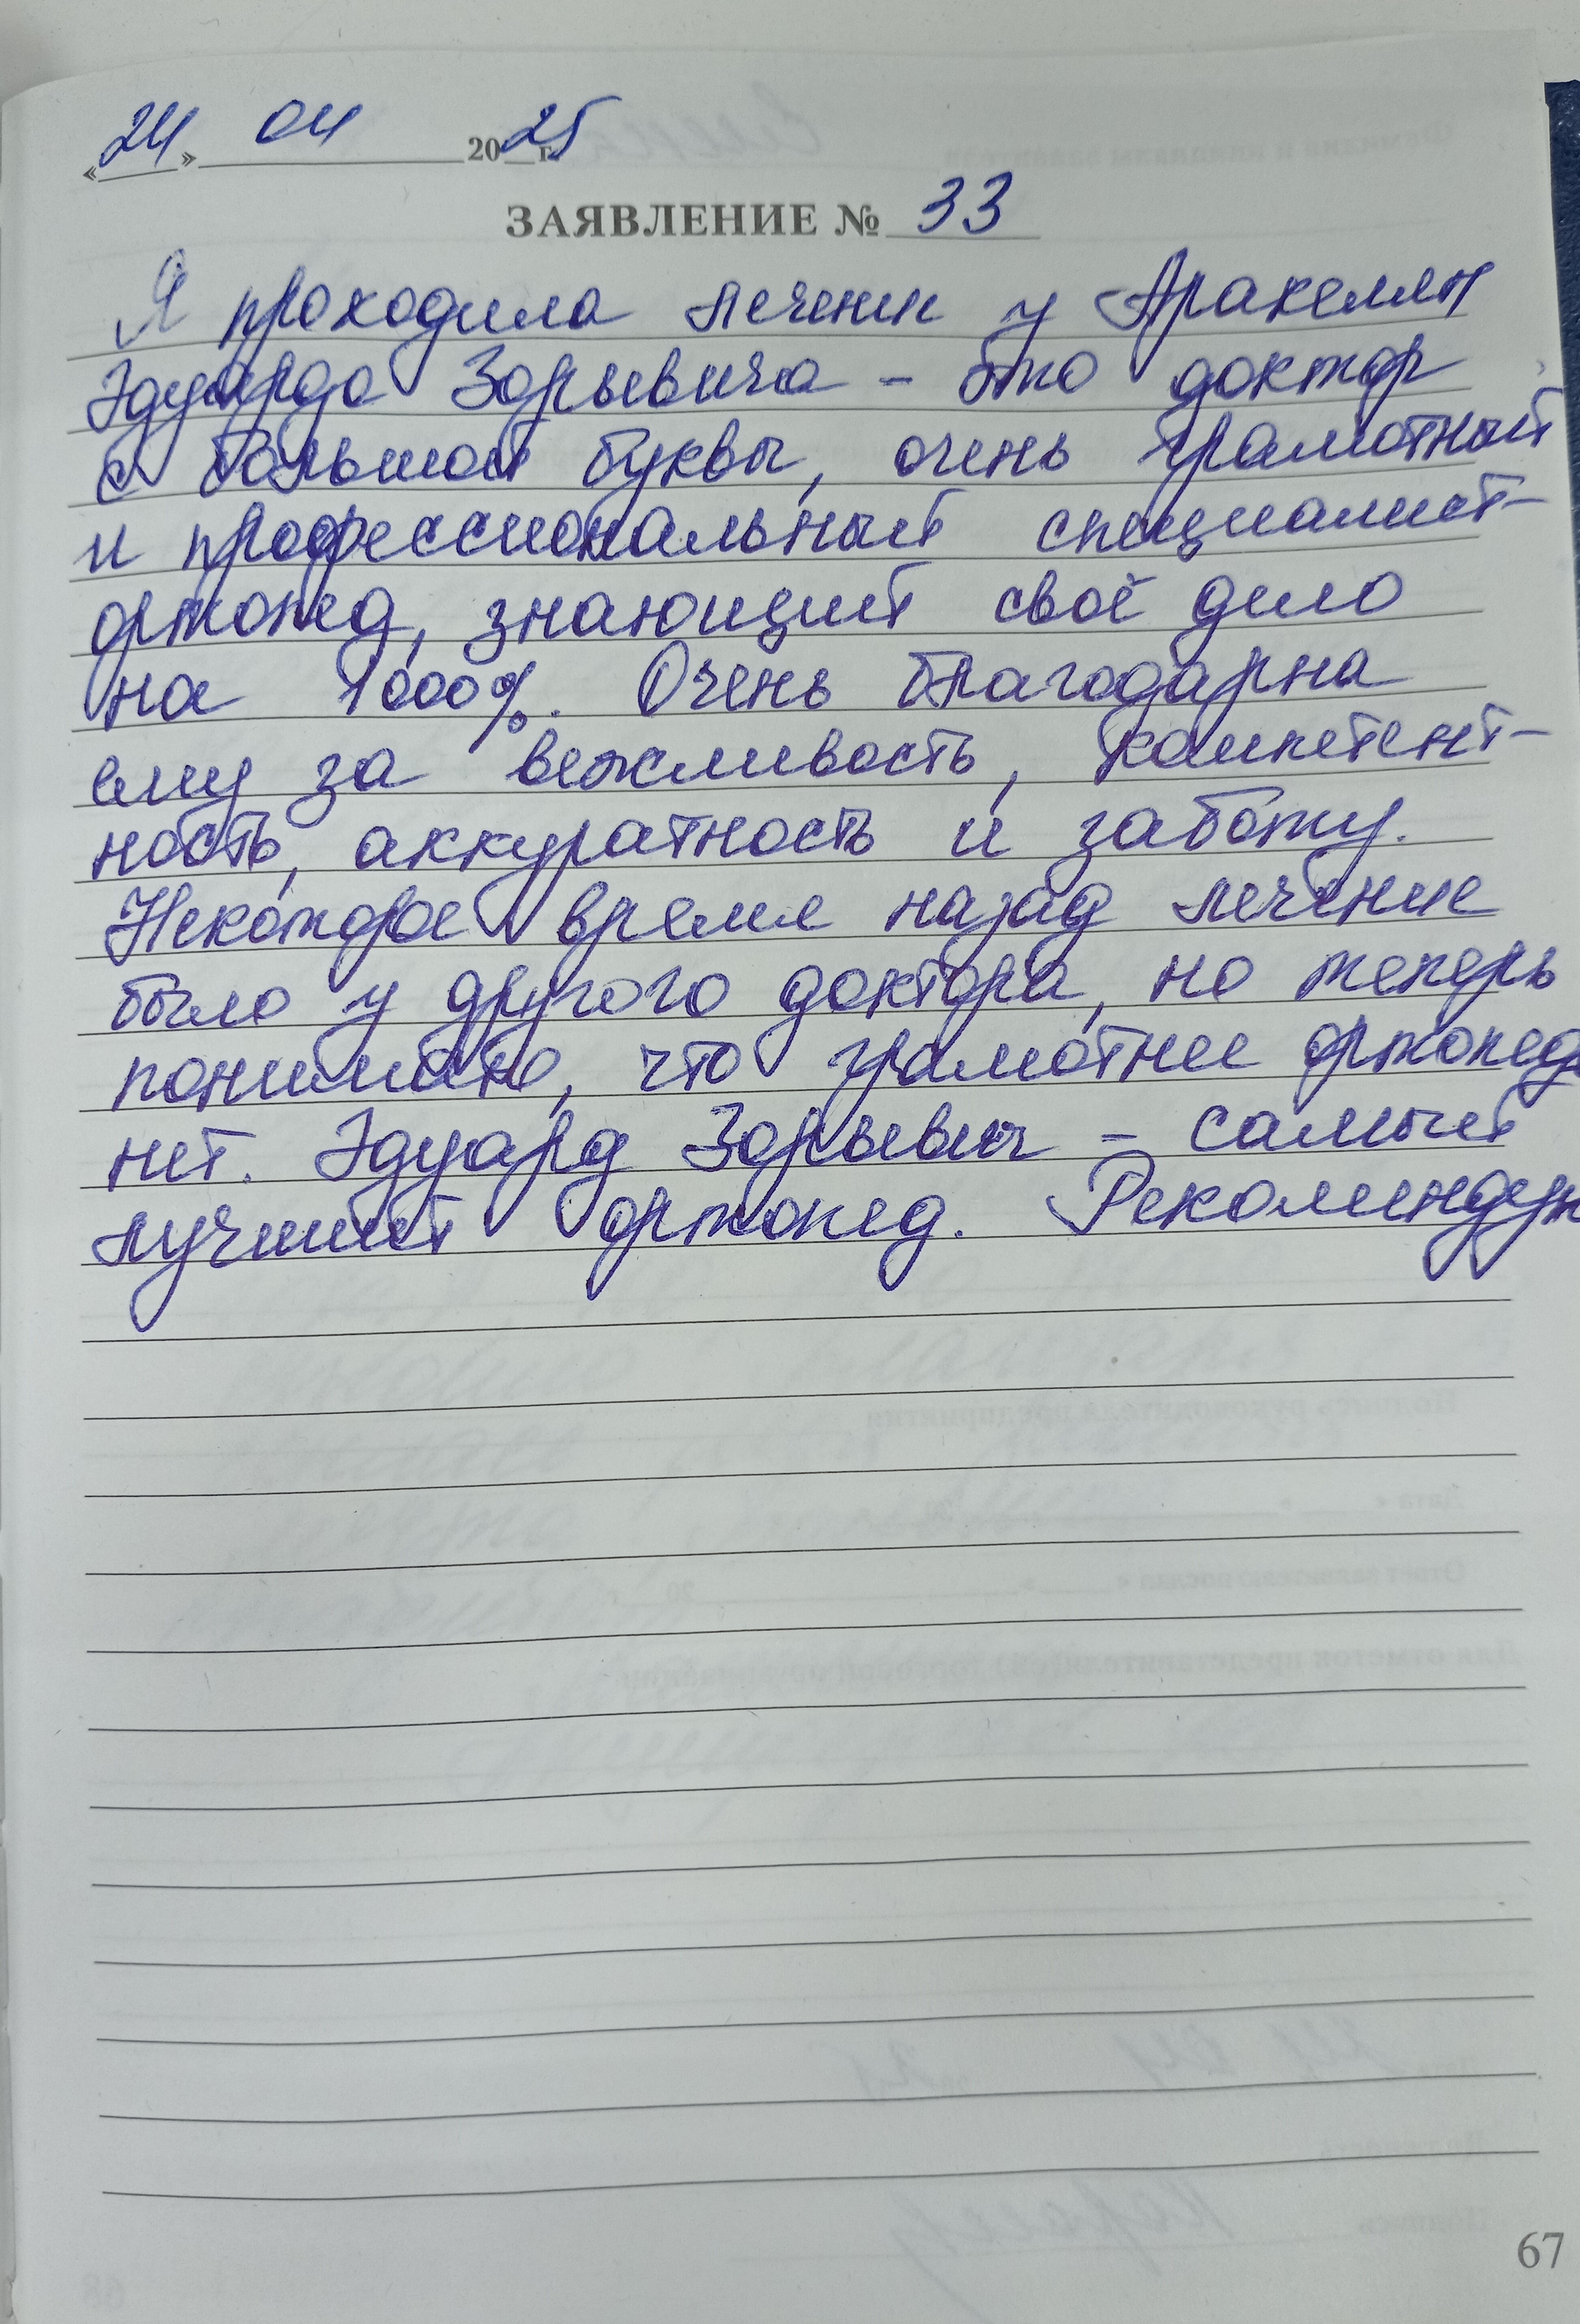 «24» 04 2025 г.
ЗАЯВЛЕНИЕ № 33
Я проходила лечение у Аракелян
Эдуарда Зорьевича – это доктор
с большой буквы, очень грамотный
и профессиональный специалист-
ортопед, знающий своё дело
на 1000%. Очень благодарна
ему за вежливость, компетент-
ность, аккуратность и заботу.
Некоторое время назад лечение
было у другого доктора, но теперь
понимаю, что грамотнее ортопеда
нет. Эдуард Зорьевич – самый
лучший ортопед. Рекомендую
67